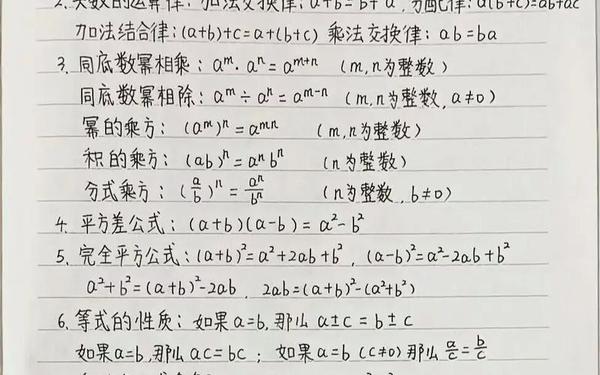 2. 实数的运算律：加法交换律：a+b=b+a，分配律：a(b+c)=ab+ac
加法结合律：(a+b)+c=a+(b+c) 乘法交换律：ab=ba
3. 同底数幂相乘：aᵐ·aⁿ=aᵐ⁺ⁿ (m,n为整数)
同底数幂相除：aᵐ÷aⁿ=aᵐ⁻ⁿ (m,n为整数,a≠0)
幂的乘方：(aᵐ)ⁿ=aᵐⁿ (m,n为整数)
积的乘方：(ab)ⁿ=aⁿbⁿ (n为整数)
分式乘方：(a/b)ⁿ=aⁿ/bⁿ (n为整数，b≠0)
4. 平方差公式：(a+b)(a-b)=a²-b²
5. 完全平方公式：(a+b)²=a²+2ab+b²，(a-b)²=a²-2ab+b²
a²+b²=(a+b)²-2ab，2ab=(a+b)²-(a²+b²)
6. 等式的性质：如果a=b,那么a±c=b±c
如果a=b,那么ac=bc；如果a=b(c≠0)那么a/c=b/c